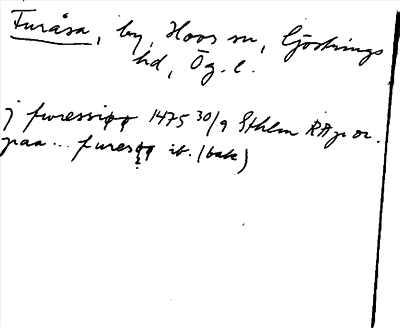 Furåsa, by, Hovs sn, Göstrings
hd, Ög. l.
j furessiøø 1475 30/9 Sthlm RAp or.
paa... furesøø ib. (bak)